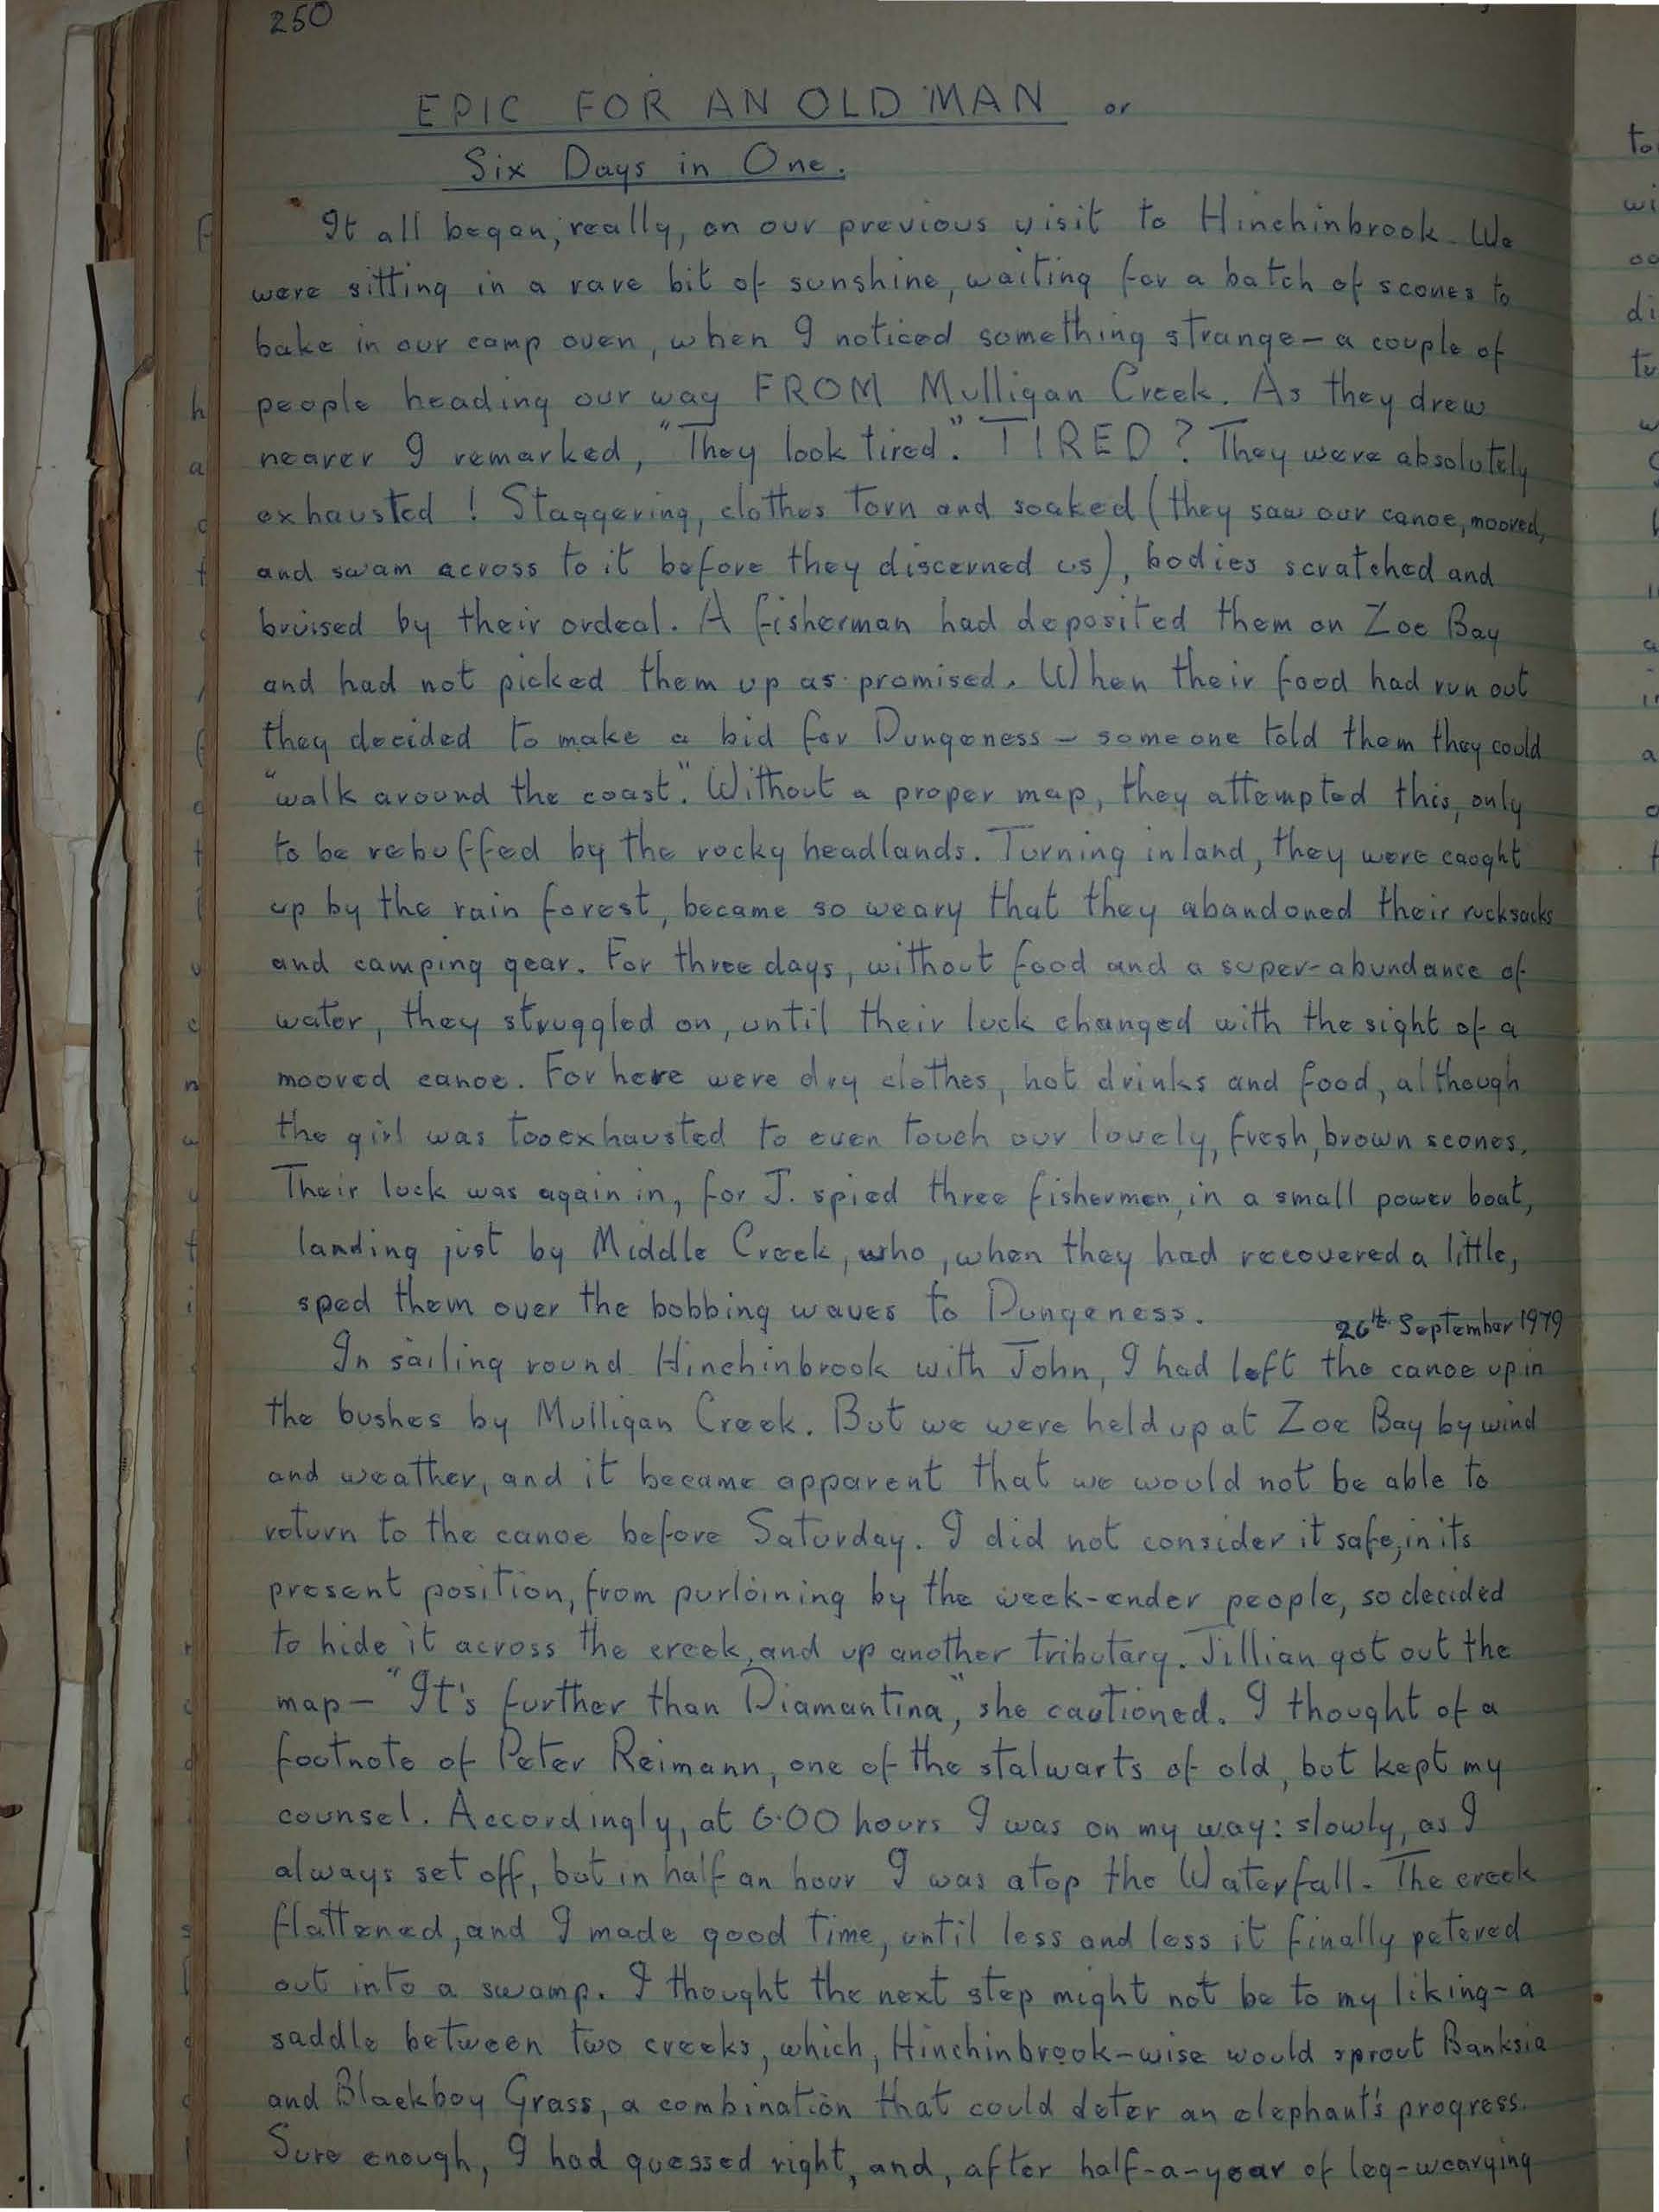 250
EPIC FOR AN OLD MAN or
Six Days in One.
It all began, really, on our previous visit to Hinchinbrook. We
were sitting in a rare bit of sunshine, waiting for a batch of scones to
bake in our camp oven, when I noticed something strange - a couple of
people heading our way FROM Mulligan Creek. As they drew
nearer I remarked, "They look tired". TIRED? They were absolutely
exhausted! Staggering, clothes torn and soaked (they saw our canoe, moored,
and swam across to it before they discerned us), bodies scratched and
bruised by their ordeal. A fisherman had deposited them on Zoe Bay
and had not picked them up as promised. When their food had run out
they decided to make a bid for Dungeness - someone told them they could
"walk around the coast". Without a proper map, they attempted this, only
to be rebuffed by the rocky headlands. Turning inland, they were caught
up by the rain forest, became so weary that they abandoned their rucksacks
and camping gear. For three days, without food and a super-abundance of
water, they struggled on, until their luck changed with the sight of a
moored canoe. For here were dry clothes, hot drinks and food, although
the girl was too exhausted to even touch our lovely, fresh, brown scones.
Their luck was again in, for J. spied three fishermen, in a small power boat,
landing just by Middle Creek, who, when they had recovered a little,
sped them over the bobbing waves to Dungeness.
26th September 1979
In sailing round Hinchinbrook with John, I had left the canoe up in
the bushes by Mulligan Creek. But we were held up at Zoe Bay by wind
and weather, and it became apparent that we would not be able to
return to the canoe before Saturday. I did not consider it safe, in its
present position, from purloining by the week-ender people, so decided
to hide it across the creek, and up another tributary. Jillian got out the
map - "It's further than Diamantina", she cautioned. I thought of a
footnote of Peter Reimann, one of the stalwarts of old, but kept my
counsel. Accordingly, at 6.00 hours I was on my way: slowly, as I
always set off, but in half an hour I was atop the Waterfall. The creek
flattened, and I made good time, until less and less it finally petered
out into a swamp. I thought the next step might not be to my liking - a
saddle between two creeks, which, Hinchinbrook-wise would sprout Banksia
and Blackboy Grass, a combination that could deter an elephant's progress.
Sure enough, I had guessed right, and, after half-a-year of leg-wearying